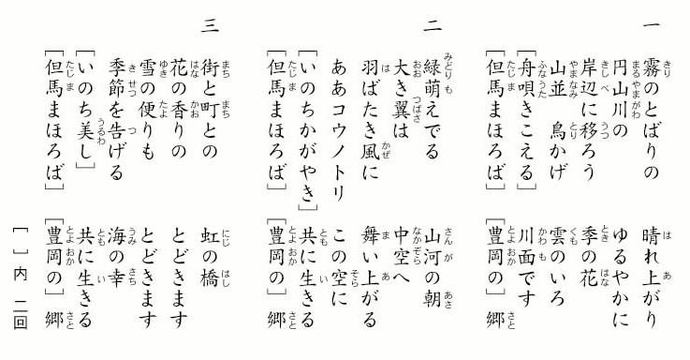 一
霧のとばりの　晴れ上がり
円山川の　ゆるやかに
岸辺に移ろう　季の花
山並　鳥かげ　雲のいろ
［舟唄きこえる］　川面です
［但馬まほろば］　［豊岡の］郷
二
緑萌えでる　山河の朝
大き翼は　中空へ
羽ばたき風に　舞い上がる
ああコウノトリ　この空に
［いのちかがやき］　共に生きる
［但馬まほろば］　［豊岡の］郷
三
街と町との　虹の橋
花の香りの　とどきます
雪の便りも　とどきます
季節を告げる　海の幸
［いのち美し］　共に生きる
［但馬まほろば］　［豊岡の］郷
［　］内　二回